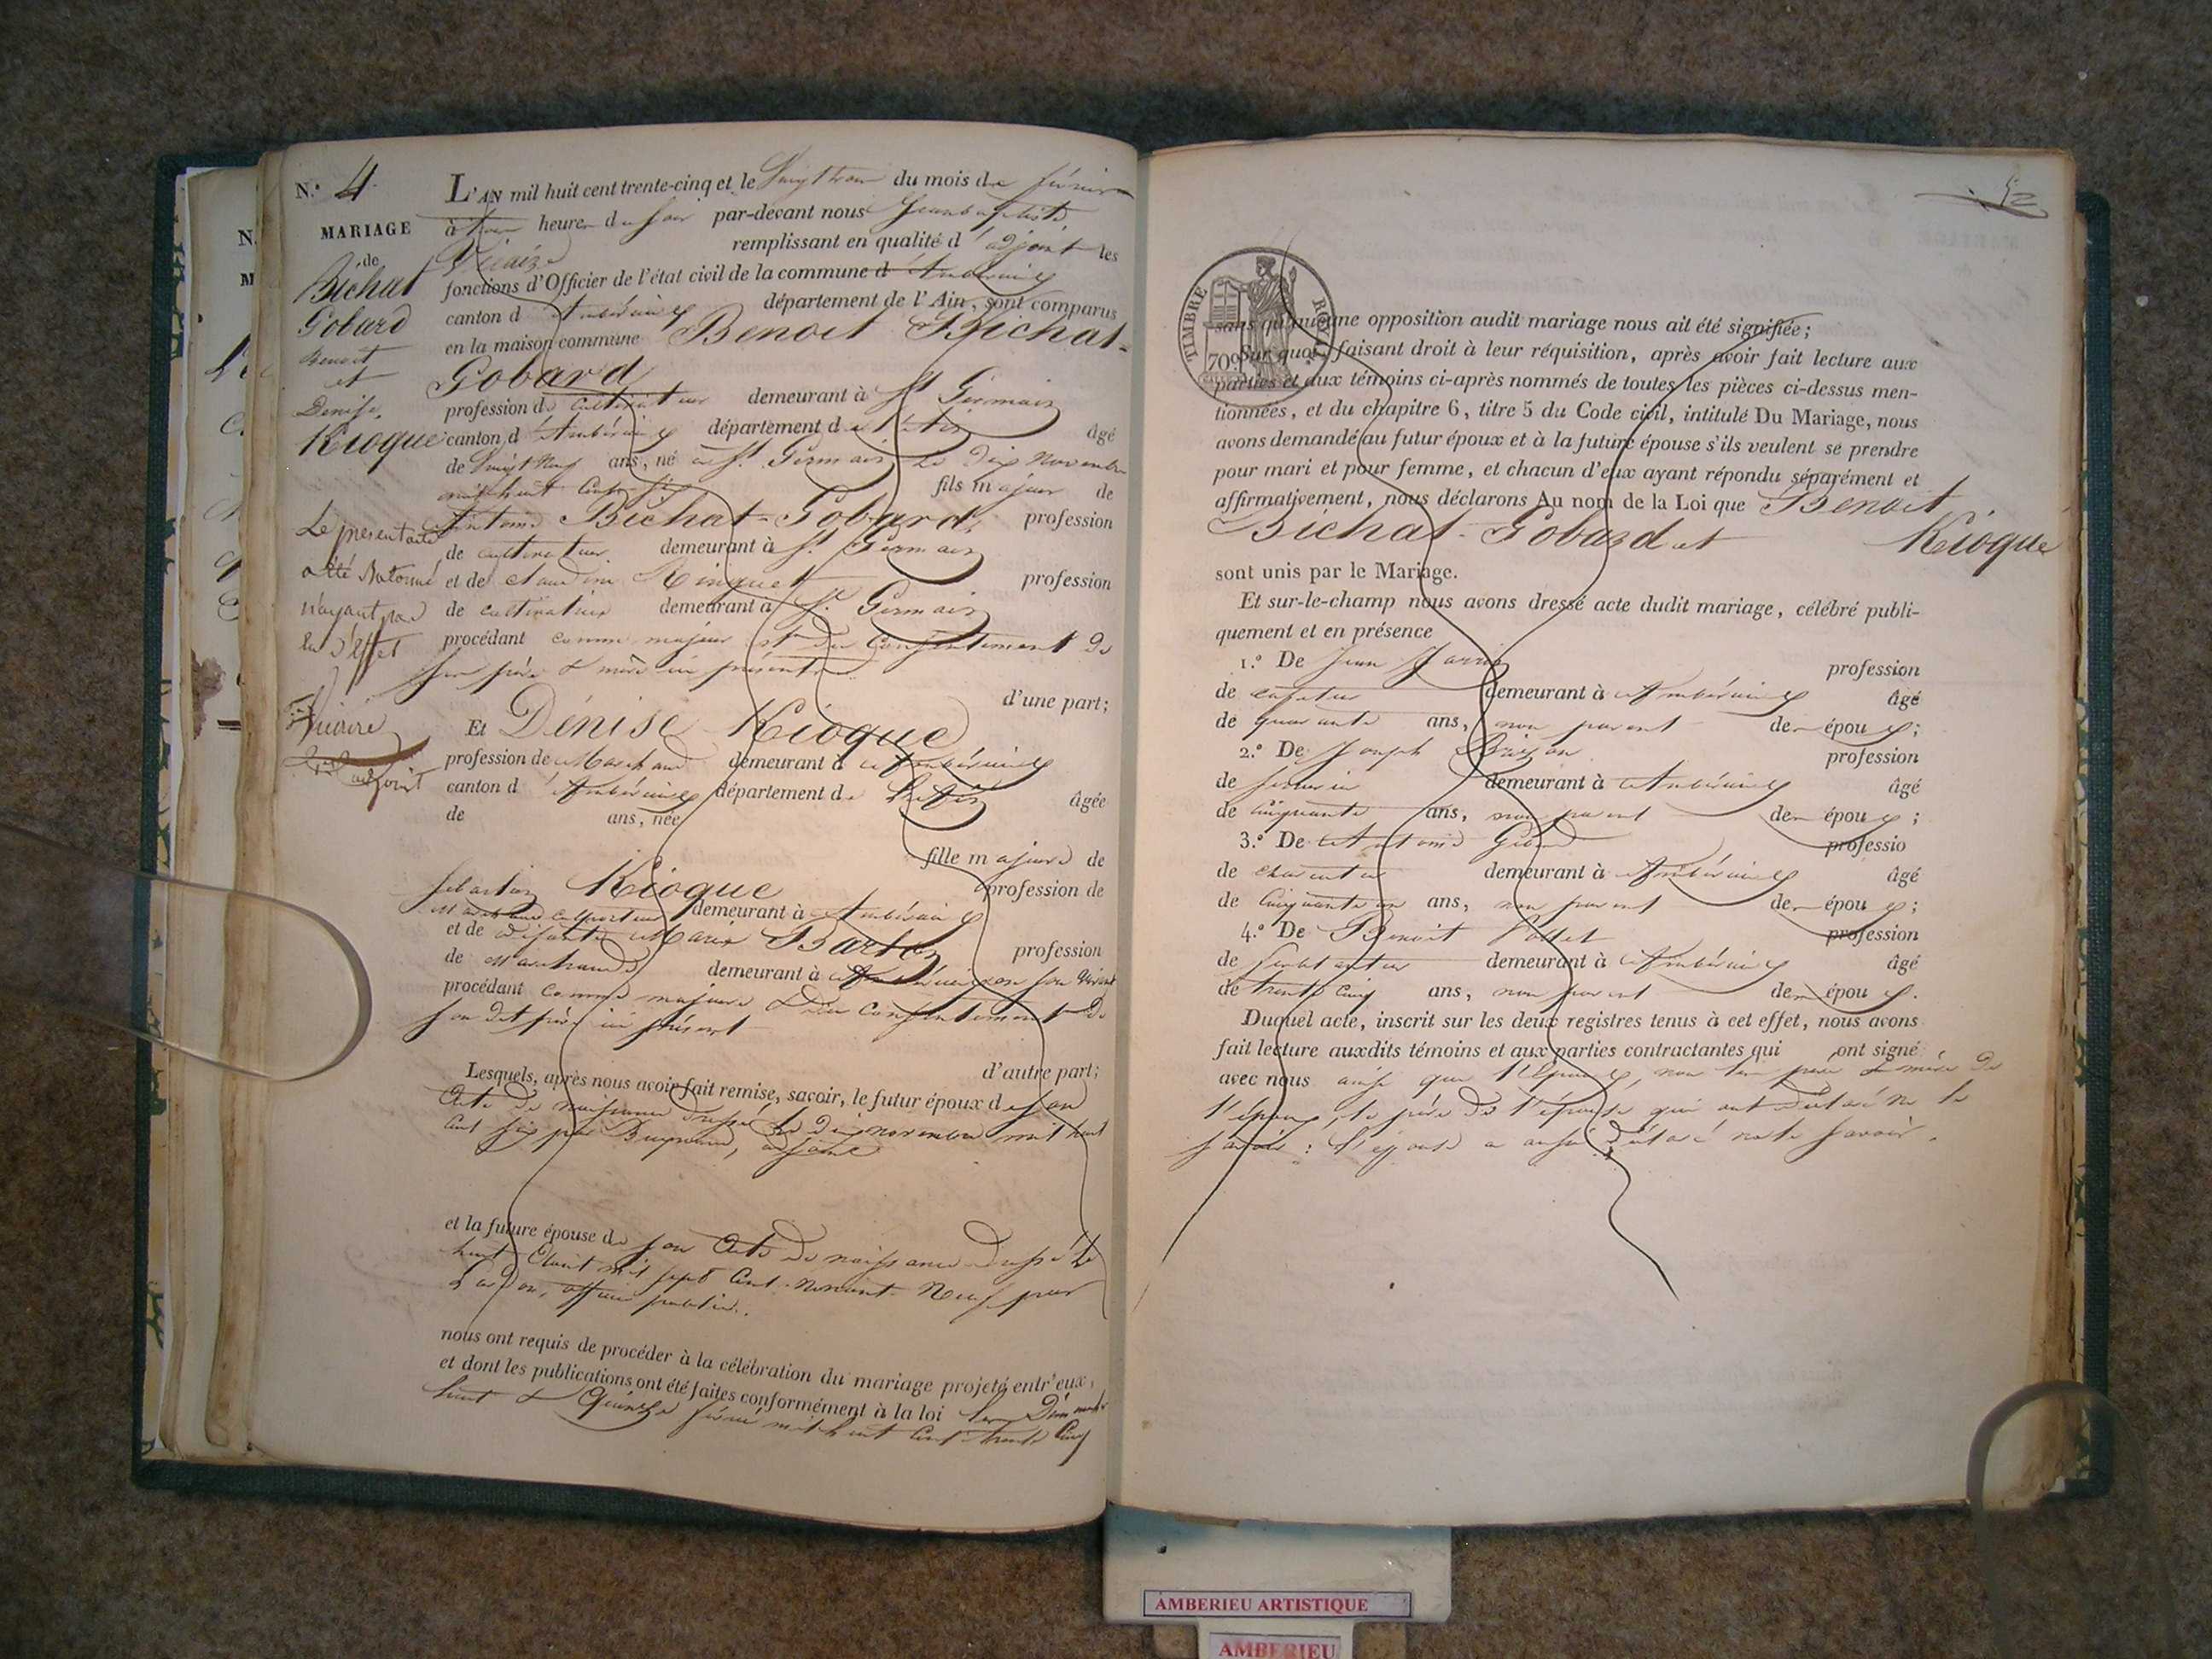 N.º 4
MARIAGE
de
Bichat
Gobard
Benoit
et
Denise
Kioque
Le présent acte
a été Batonné
n'ayant pas
eu d'effet
adjoint
L'AN mil huit cent trente-cinq et le Vingt trois du mois de février
à trois heures du soir par-devant nous Jean baptiste
remplissant en qualité d'adjoint les
fonctions d'Officier de l'état civil de la commune d'Ambérieux
canton d'Ambérieux département de l'Ain, sont comparus
en la maison commune Benoit Bichat-
Gobard
profession de cultivateur demeurant à St Germain
canton d'Ambérieux département de l'Ain âgé
de Vingt huit ans, né à St Germain le dix novembre
mil huit cent six fils majeur de
Antoine Bichat-Gobard, profession
de cultivateur demeurant à St Germain
et de Claudine profession
de cultivatrice demeurant à St Germain
procédant comme majeur et du Consentement de
son père & mère ici présents
d'une part;
Et Dénise Kioque
profession de Marchand demeurant à Ambérieux
canton d'Ambérieux département de l'Ain âgée
de ans, née
fille majeure de
Sebastien Kioque profession de
Marchand colporteur demeurant à Ambérieux
et de défunte Marie profession
de Marchande demeurant à Ambérieux en son vivant
procédant comme majeure & du consentement de
son dit père ici présent
d'autre part;
Lesquels, après nous avoir fait remise, savoir, le futur époux de son
Acte de naissance dressé le dix novembre mil huit
cent six par adjoint
et la future épouse de son Acte de naissance dressé le
huit mil sept cent nonante Neuf par
officier public.
nous ont requis de procéder à la célébration du mariage projeté entr'eux,
et dont les publications ont été faites conformément à la loi les Dimanches
huit & Quinze février mil huit cent trente Cinq
TIMBRE ROYAL
70
sans qu'aucune opposition audit mariage nous ait été signifiée;
Sur quoi, faisant droit à leur réquisition, après avoir fait lecture aux
parties et aux témoins ci-après nommés de toutes les pièces ci-dessus men-
tionnées, et du chapitre 6, titre 5 du Code civil, intitulé Du Mariage, nous
avons demandé au futur époux et à la future épouse s'ils veulent se prendre
pour mari et pour femme, et chacun d'eux ayant répondu séparément et
affirmativement, nous déclarons Au nom de la Loi que Benoit
Bichat-Gobard et Kioque
sont unis par le Mariage.
Et sur-le-champ nous avons dressé acte dudit mariage, célébré publi-
quement et en présence
1.º De Jean profession
de demeurant à Ambérieux âgé
de quarante ans, non parent des époux;
2.º De Joseph profession
de demeurant à Ambérieux âgé
de cinquante ans, non parent des époux;
3.º De Antoine profession
de demeurant à Ambérieux âgé
de cinquante un ans, non parent des époux;
4.º De Benoit profession
de demeurant à Ambérieux âgé
de trente cinq ans, non parent des époux.
Duquel acte, inscrit sur les deux registres tenus à cet effet, nous avons
fait lecture auxdits témoins et aux parties contractantes qui ont signé
avec nous ainsi que l'époux, non les père & mère de
l'époux, le père de l'épouse qui ont déclaré ne le
savoir: l'épouse a aussi déclaré ne le savoir.
AMBERIEU ARTISTIQUE
AMBERIEU